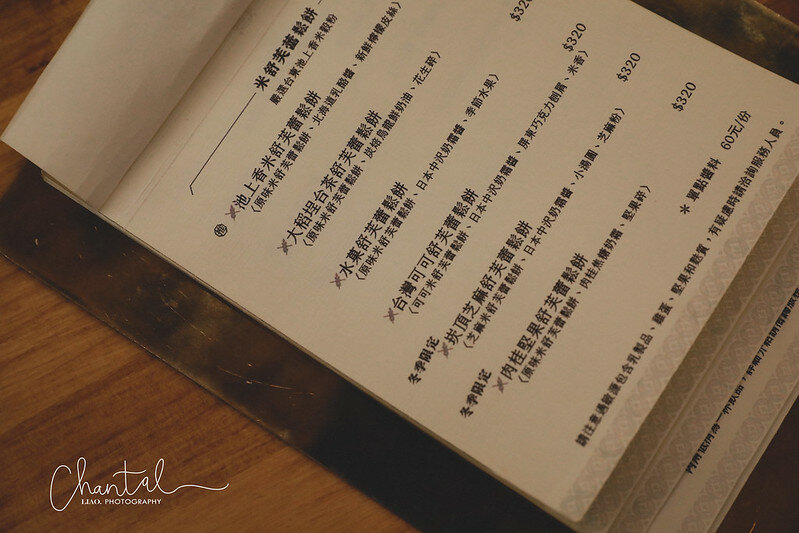 米舒芙蕾鬆餅
嚴選台東池上香米穀粉
池上香米舒芙蕾鬆餅
〈原味米舒芙蕾鬆餅、北海道乳酪醬、新鮮檸檬皮絲〉
大稻埕台茶舒芙蕾鬆餅
〈原味米舒芙蕾鬆餅、炭焙烏龍鮮奶油、花生碎〉
水菓舒芙蕾鬆餅 $320
〈原味米舒芙蕾鬆餅、日本中沢奶霜醬、季節水果〉
台灣可可舒芙蕾鬆餅 $320
〈可可米舒芙蕾鬆餅、日本中沢奶霜醬、屏東巧克力刨屑、米香〉
冬季限定 崁頂芝麻舒芙蕾鬆餅 $320
〈芝麻米舒芙蕾鬆餅、日本中沢奶霜醬、小湯圓、芝麻粉〉
冬季限定 肉桂堅果舒芙蕾鬆餅 $320
〈原味米舒芙蕾鬆餅、肉桂焦糖奶霜、堅果碎〉
* 單點醬料 60元/份
請注意過敏源包含乳製品、雞蛋、堅果和麩質，有疑慮時請洽詢服務人員。
Chantal
LIAO. PHOTOGRAPHY